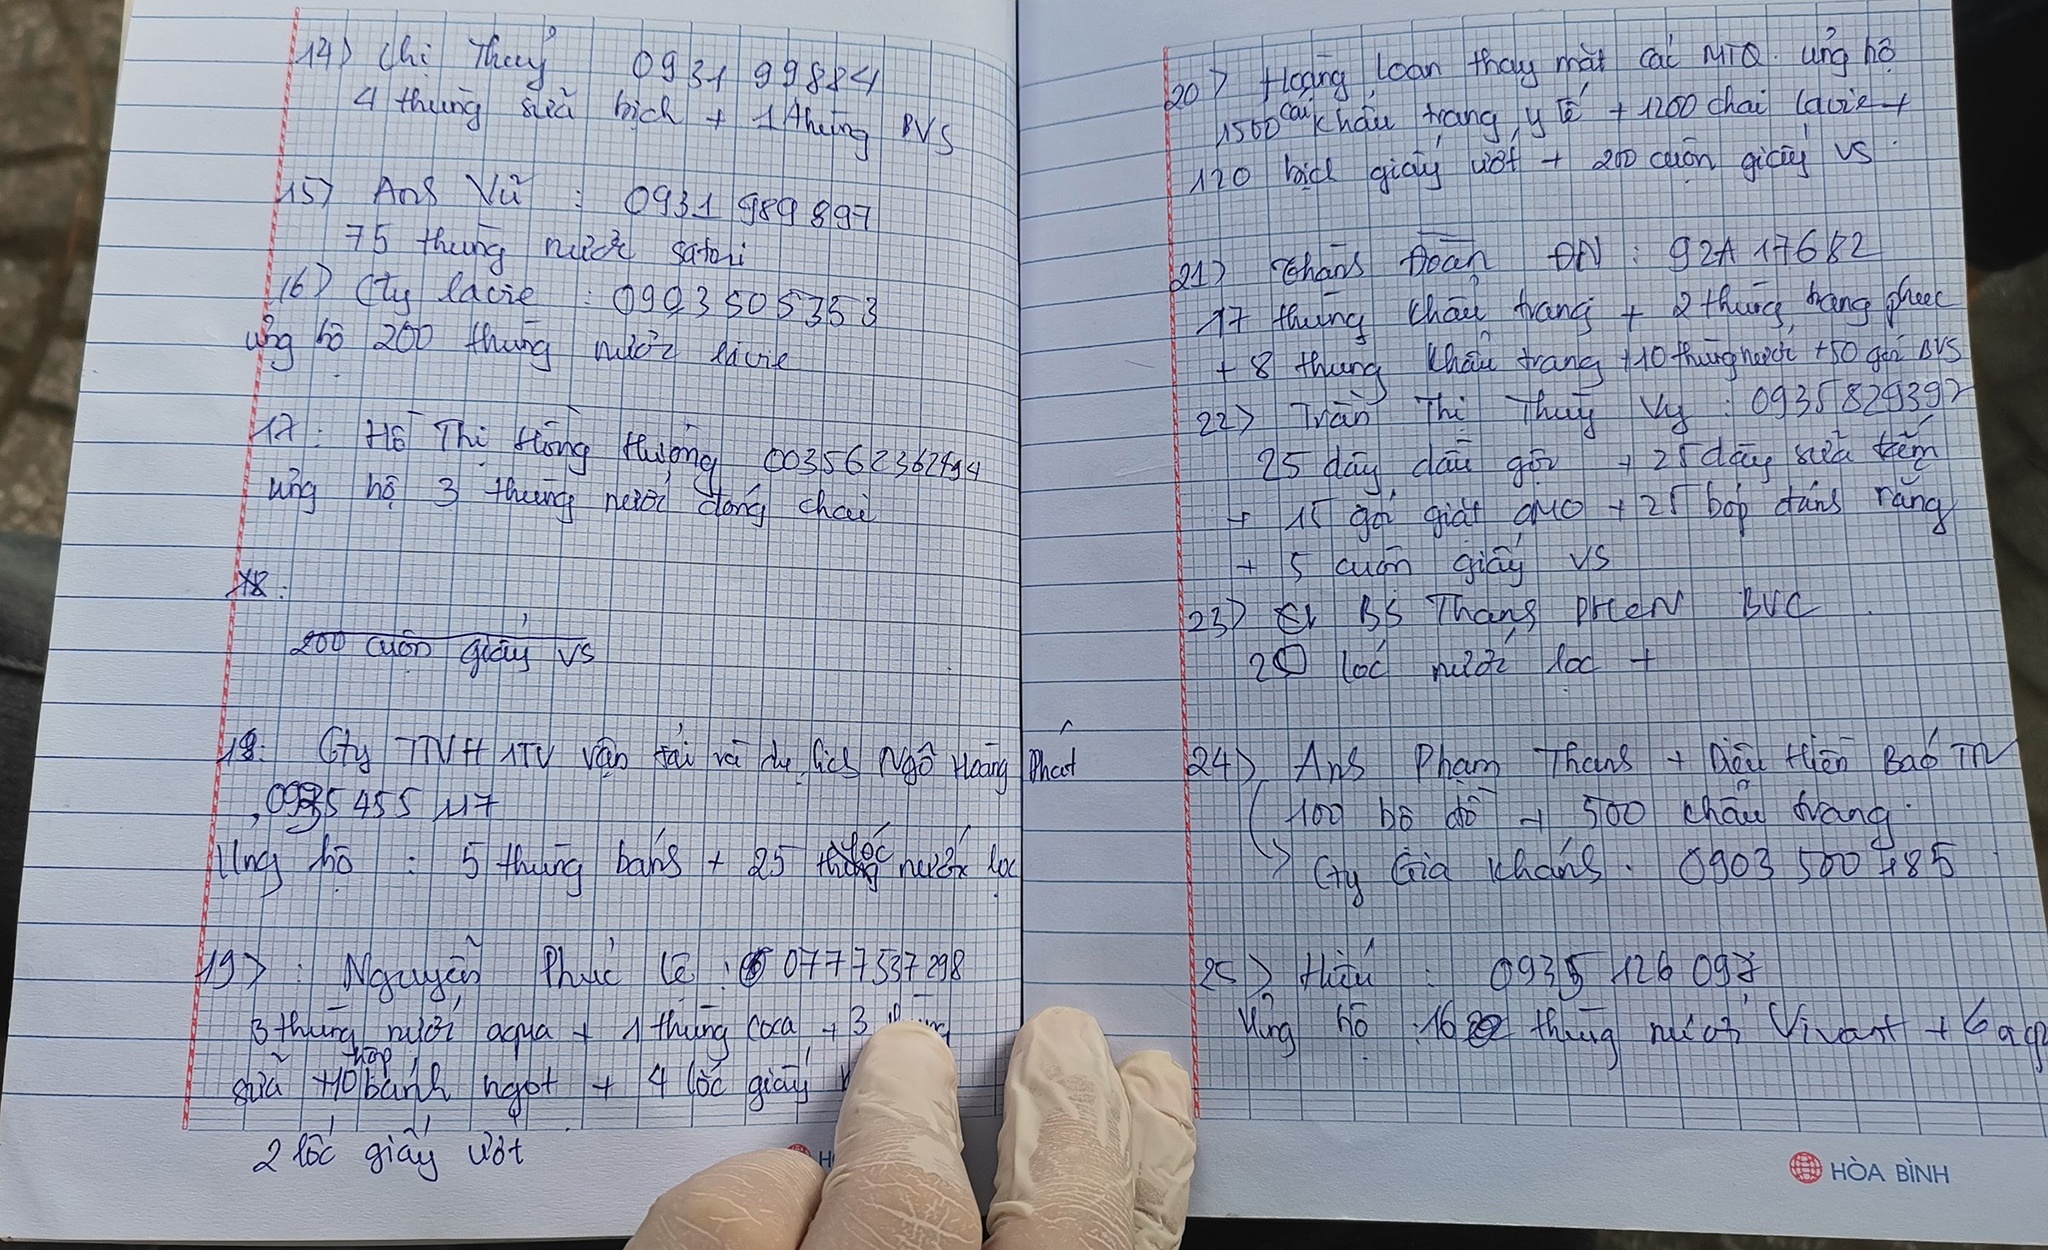 14) Chị Thuý 0931 99884
4 thùng sữa bịch + 1 thùng BVS
15) Anh Vũ : 0931 989 897
75 thùng nước satori
16) Cty lavie : 0903 505 353
ủng hộ 200 thùng nước lavie
17: Hồ Thị Hồng Phượng
ủng hộ 3 thùng nước đóng chai
18:
200 cuộn giấy VS
18: Cty TNHH 1TV vận tải và du lịch Ngô Hoàng Phát
0935 455 117
Ủng hộ : 5 thùng bánh + 25 lốc nước lọc
19) : Nguyễn Phúc Lê : 0777 537 298
3 thùng nước aqua + 1 thùng coca + 3
sữa + 10 hộp bánh ngọt + 4 lốc giấy
2 lốc giấy ướt
20) Hoàng Loan thay mặt các MTQ. ủng hộ
1500 cái khẩu trang y tế + 1200 chai lavie +
120 bịch giấy ướt + 200 cuộn giấy VS
21) Thành Đoàn ĐN : 92A 17682
17 thùng khẩu trang + 2 thùng trang phục
+ 8 thùng khẩu trang + 10 thùng nước + 50 gói BVS
22) Trần Thị Thuý Vy : 0935829392
25 dây dầu gội + 25 dây sữa tắm
+ 15 gói giặt OMO + 25 bóp đánh răng
+ 5 cuộn giấy VS
23) BS Thang BVC
20 lốc nước lọc +
24) Anh Phạm Thanh + Diệu Hiền Báo TN
100 bộ đồ + 500 khẩu trang.
Cty Gia Khánh. 0903 500 485
25) Hiếu : 0935 126 097
Ủng hộ : 16 thùng nước Vivant + 6
HÒA BÌNH